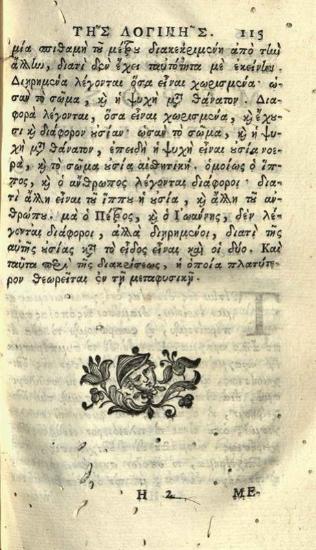 ΤΗ͂Σ ΛΟΓΙΚΗ͂Σ. 115
μία σπιθαμὴ τοῦ μέξου διακεκριμένη ἀπὸ τὴν
ἄλλην, διατὶ δὲν ἔχει ταυτότητα μὲ ἐκείνην.
Διῃρημένα λέγονται ὅσα εἶναι χωρισμένα· ὡ-
σὰν τὸ σῶμα, καὶ ἡ ψυχὴ μετὰ θάνατον. Διά-
φορα λέγονται, ὅσα εἶναι χωρισμένα, καὶ ἔχου-
σι καὶ διάφορον οὐσίαν· ὡσὰν τὸ σῶμα, καὶ ἡ ψυ-
χὴ μετὰ θάνατον, ἐπειδὴ ἡ ψυχὴ εἶναι οὐσία νοε-
ρὰ, καὶ τὸ σῶμα οὐσία αἰσθητική. ὁμοίως ὁ ἵπ-
πος, καὶ ὁ ἄνθρωπος λέγονται διάφοροι· δια-
τὶ ἄλλη εἶναι τοῦ ἵππου ἡ οὐσία, καὶ ἄλλη τοῦ ἀν-
θρώπου. μὰ ὁ Πέτρος, καὶ ὁ Ἰωάννης, δὲν λέ-
γονται διάφοροι, ἀλλὰ διῃρημένοι, διατὶ τῆς
αὐτῆς οὐσίας κατὰ τὸ εἶδος εἶναι καὶ οἱ δύο. Καὶ
ταῦτα περὶ τῆς διακρίσεως, ἡ ὁποία πλατύτε-
ρον θεωρεῖται ἐν τῇ μεταφυσικῇ.
Η 2 ΜΕ-